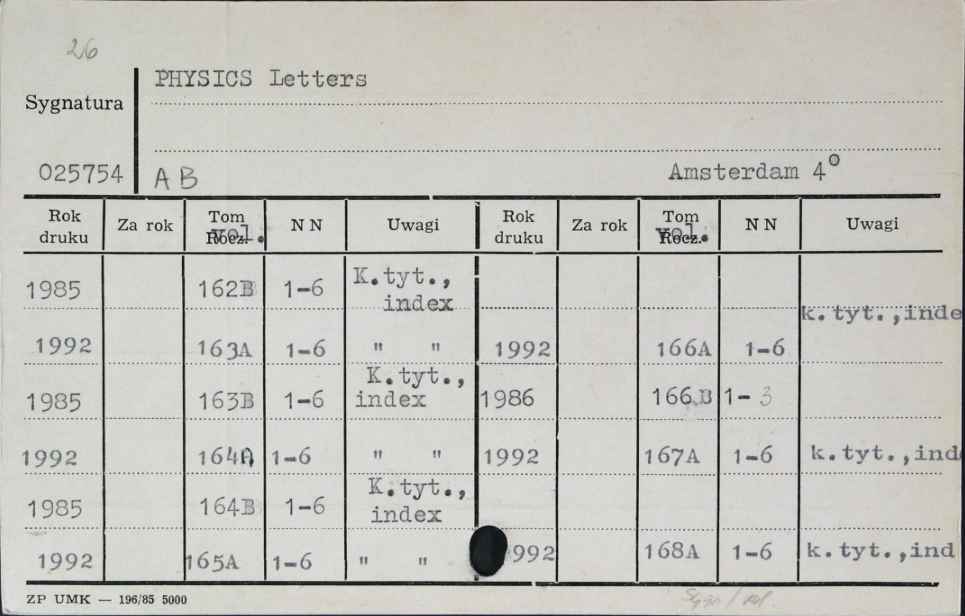 26
PHYSICS Letters
Sygnatura
025754 AB Amsterdam 4°
Rok druku Za rok Tom Rocz. vol. NN Uwagi Rok druku Za rok Tom Rocz. vol. NN Uwagi
1985 162B 1-6 K.tyt., index
k.tyt.,inde
1992 163A 1-6 " " 1992 166A 1-6
1985 163B 1-6 K.tyt., index 1986 166B 1-3
1992 164A 1-6 " " 1992 167A 1-6 k.tyt.,ind
1985 164B 1-6 K.tyt., index
1992 165A 1-6 " " 992 168A 1-6 k.tyt.,ind
ZP UMK — 196/85 5000